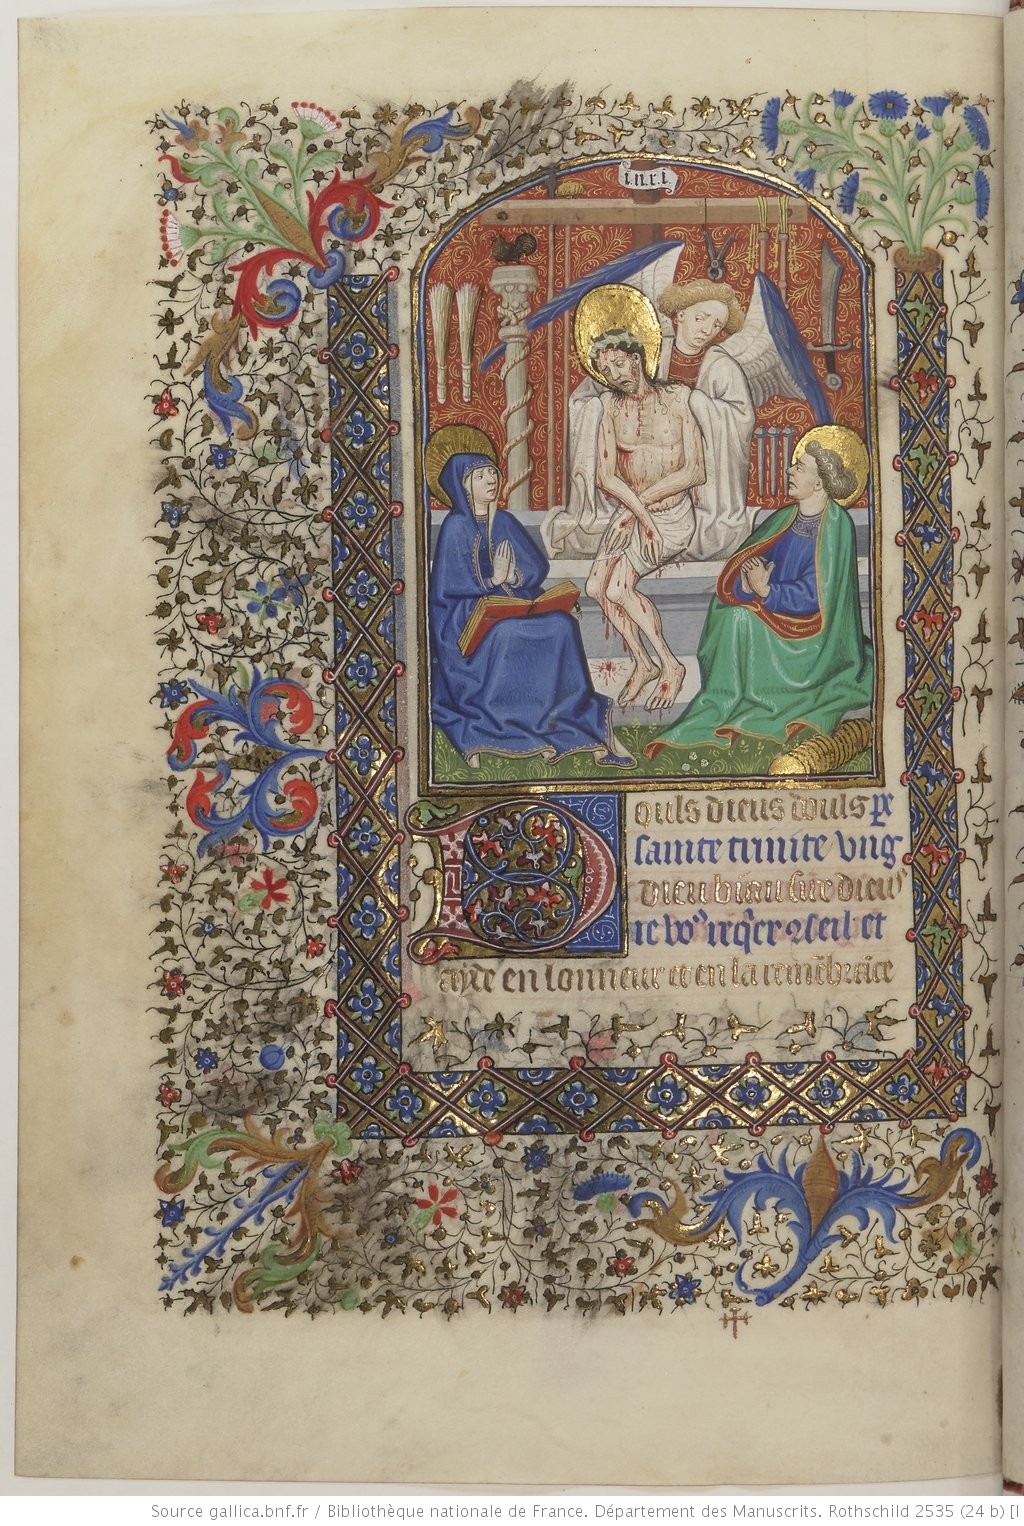 i.n.r.i.
Douls dieus douls pẽ
sainte trinite vng
dieu biau sire dieuˢ
ie voˢ reqͥer ꝯseil et
ayde en lonneur et en la remẽbrãce
Source gallica.bnf.fr / Bibliothèque nationale de France. Département des Manuscrits. Rothschild 2535 (24 b) [I